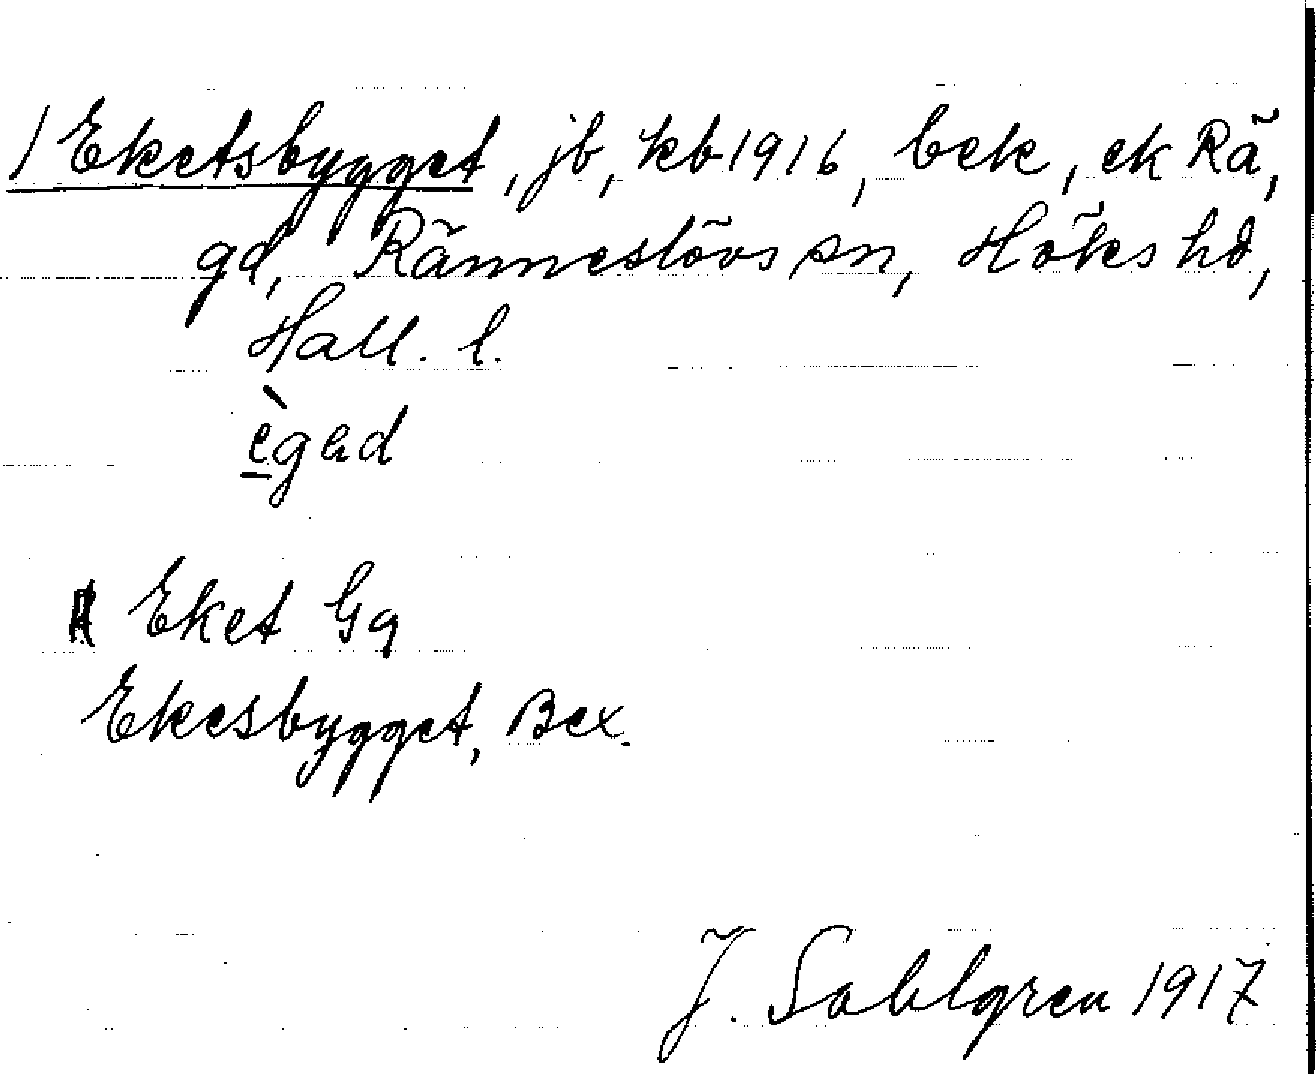 / Eketsbygget, jb, kb 1916, bek, ek Rä,
gd, Ränneslövs sn, Höks hd,
Hall. l.
ègad
Eket Gg
Ekesbygget, Bex.
J. Sahlgren 1917